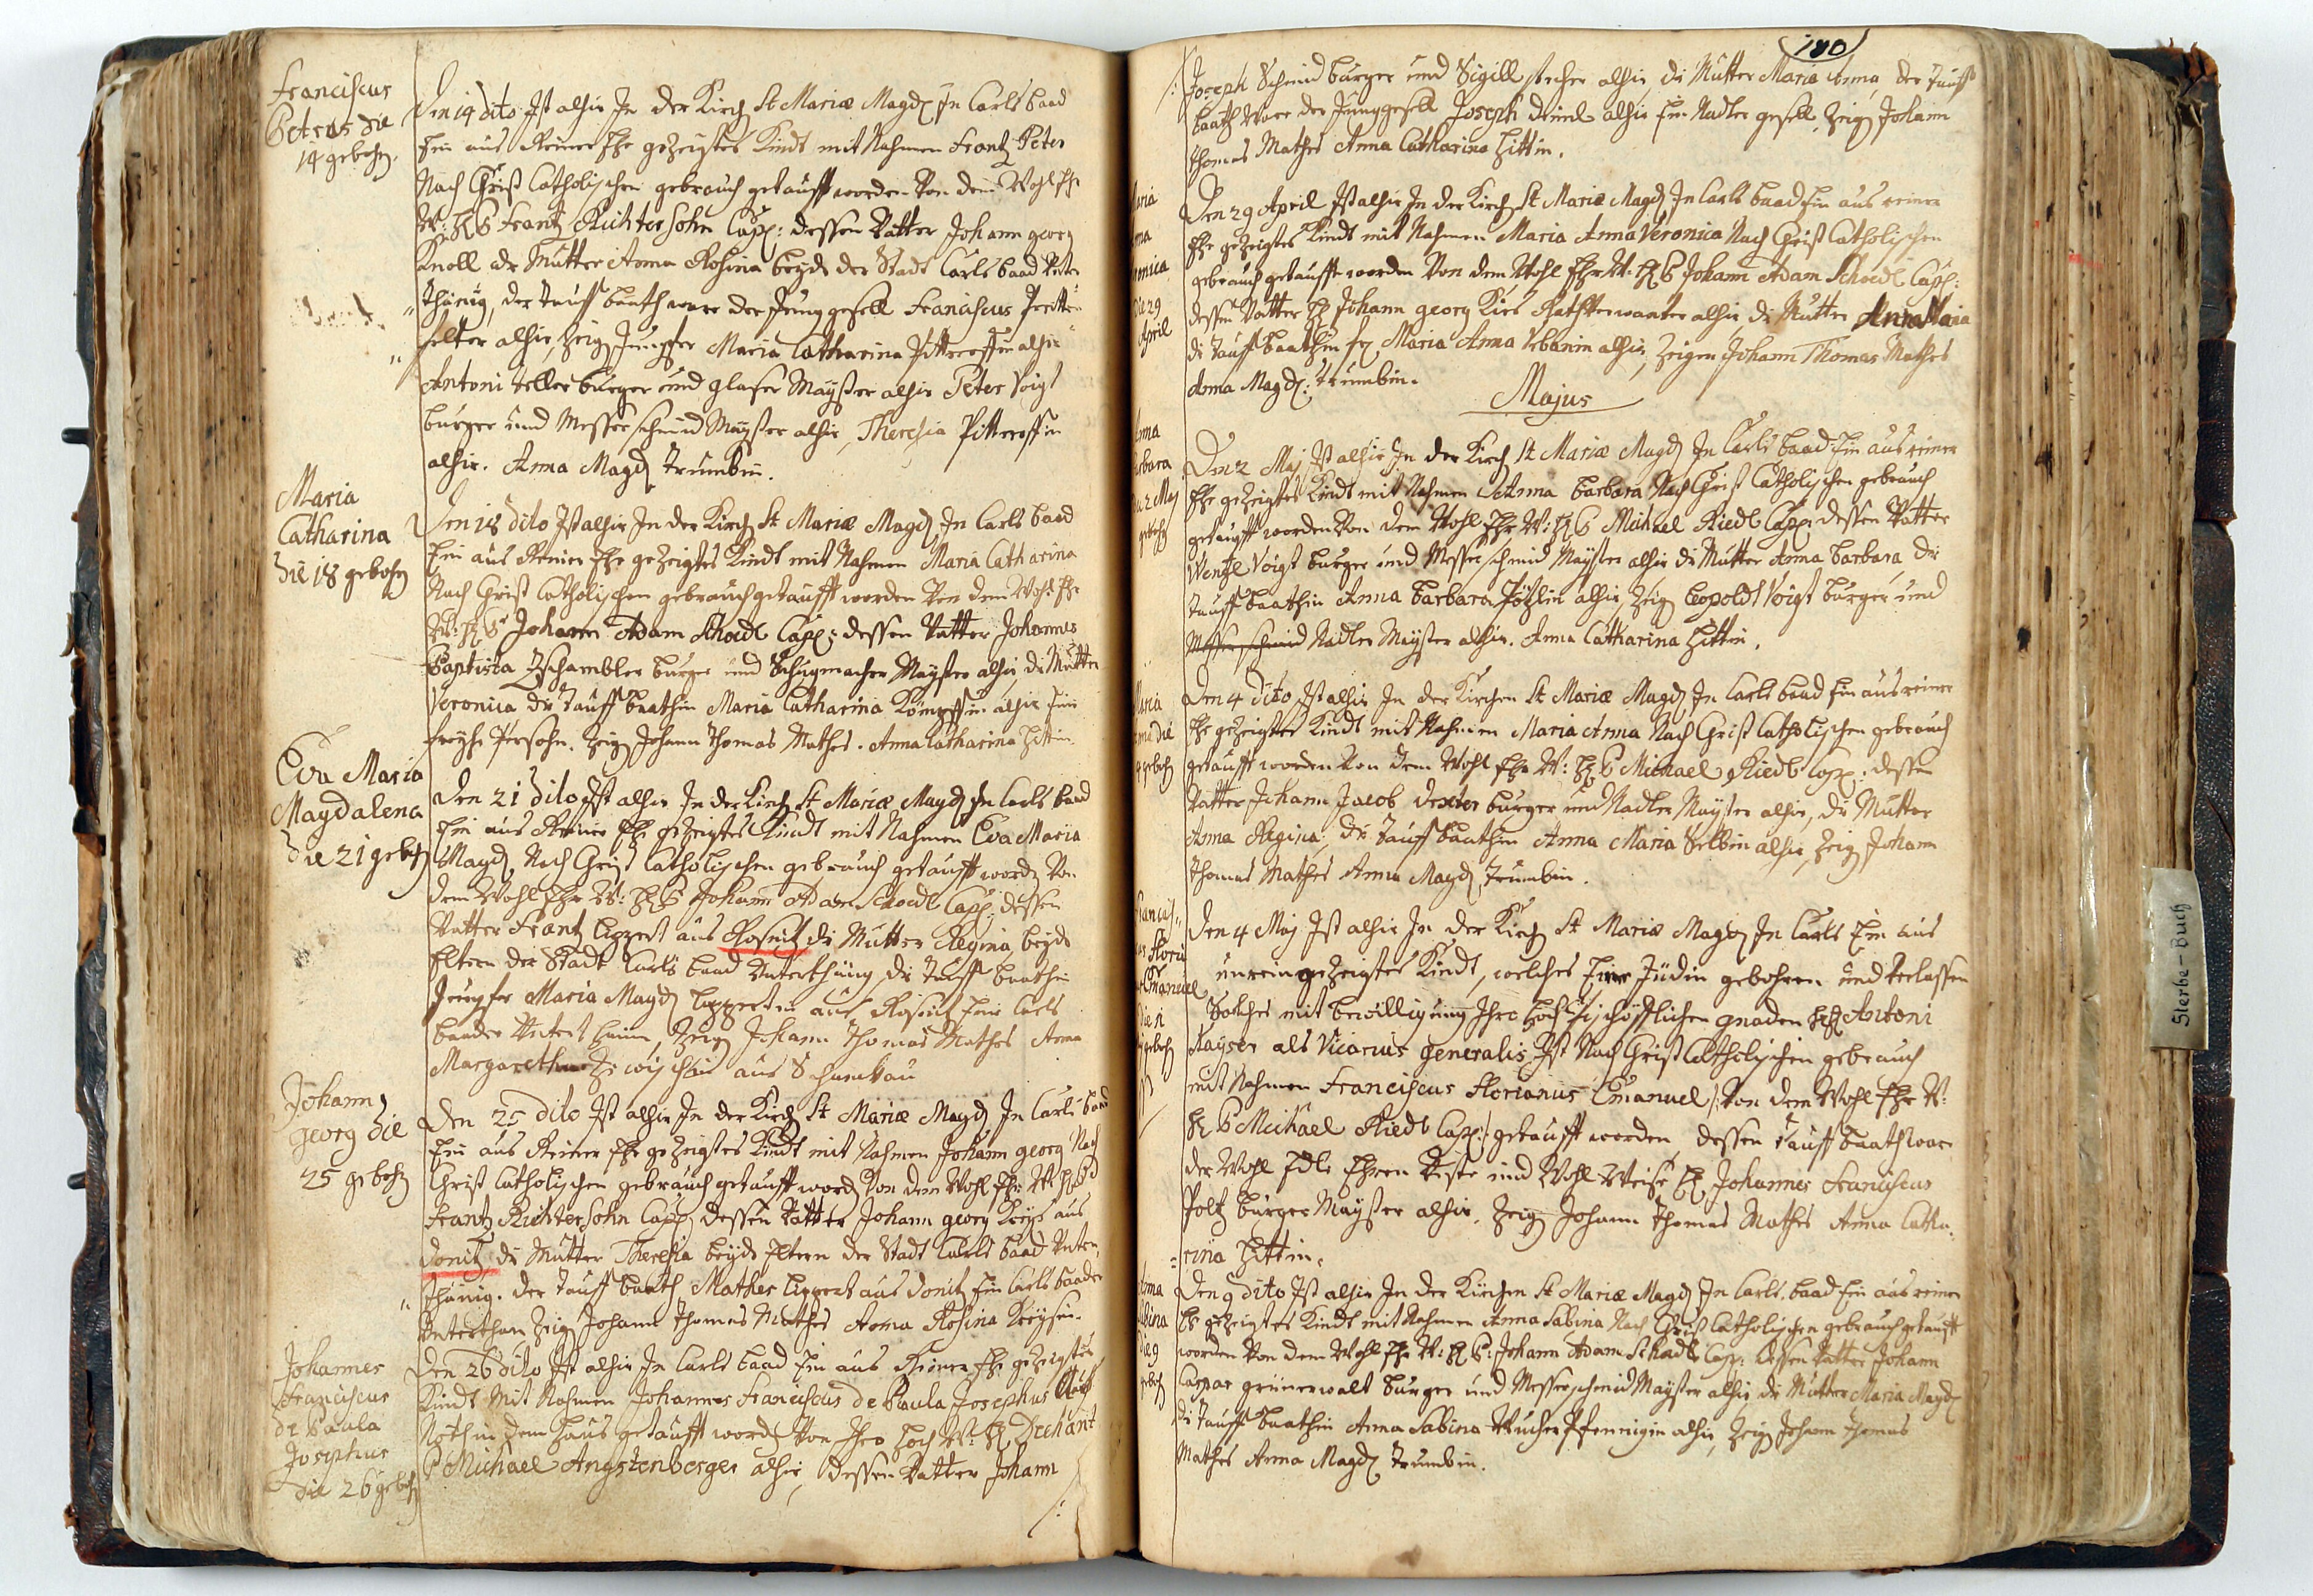 Franciscus
Petrus die
14 gebohr.
Den 14 dito Ist alhir In der Kirch St Mariæ Magd In Carls baad
Ein aus Reiner Ehe gezeigtes Kindt mit Nahmen Frantz Peter
Nach Christ Catholischen gebrauch getaufft worden Von dem Wohl Ehr
W: H P Frantz Richtersohn Capp: dessen Vatter Johann georg
Knoll die Mutter Anna Rosina beyde der Stadt Carls baad Unter
thänig, der Tauff baath ware der Jung gesell Franciscus
alhir, Zeig Jungfer Maria Catharina Pitteroffin alhir
Antoni Teller burger und glaser Mayster alhir Peter Voigt
burger und Messerschmid Mayster alhir, Theresia Pitteroffin
alhir. Anna Magd Trumbin.
Maria
Catharina
die 18 gebohr
Den 18 dito Ist alhir In der Kirch St Mariæ Magd In Carls baad
Ein aus Reiner Ehe gezeigtes Kindt mit Nahmen Maria Catharina
Nach Christ Catholischen gebrauch getaufft worden Von dem Wohl Ehr
W: H P Johann Adam Schoedl Capp: dessen Vatter Johannes
Baptista Zschambler burger und Schugmacher Mayster alhir die Mutter
Veronica die Tauff baathin Maria Catharina Kömpffin alhir Eine
freyhe Persohn. Zeig Johann Thomas Mathes. Anna Catharina Hittin.
Eva Maria
Magdalena
die 21 gebohr
Den 21 dito Ist alhir In der Kirch St Mariæ Magd In Carls baad
Ein aus Reiner Ehe gezeigtes Kindt mit Nahmen Eva Maria
Magd, Nach Christ Catholischen gebrauch getaufft word Von
dem Wohl Ehr W: H P Johann Adam Schoedl Capp: dessen
Vatter Frantz Lippert aus Rosnitz die Mutter Regina, beyde
Eltern der Stadt Carls baad Unterthänig, die Tauff baathin
Jungfer Maria Magd Lippertin aus Rosnitz Eine Carls
baader Zeig Johann Thomas Mathes Anna
Margaretha aus
Johann
georg die
25 gebohr
Den 25 dito Ist alhir In der Kirch St Mariæ Magd In Carls baad
Ein aus Reiner Ehe gezeigtes Kindt mit Nahmen Johann georg Nach
Christ Catholischen gebrauch getaufft word Von dem Wohl Ehr W H P
Frantz Richtersohn Capp dessen Vatter Johann georg aus
Donitz, die Mutter Theresia beyde Eltern der Stadt Carls baad Unter,
thänig. der Tauff baath Mathes Lippert aus Donitz Ein Carls baader
Unterthan Zeig Johann Thomas Mathes Anna Rosina
Johannes
Franciscus
de Paula
Josephus
die 26 gebohr
Den 26 dito Ist alhir In Carls baad Ein aus Reiner Ehe gezeigtes
Kindt Mit Nahmen Johannes Franciscus de Paula Josephus
Noth in dem Haus getaufft word Von Ihro Hoch W: H Dechant
P Michael Angstenberger alhir, dessen Vatter Johann
/:
180
/: Joseph Schmid burger und Sigill stecher alhir, die Mutter Maria Anna, der Tauff
baath ware der Junggesell Joseph alhir Ein Nadler gesell, Zeig Johann
Thomas Mathes Anna Catharina Hittin.
29
April
Den 29 April Ist alhir In der Kirch St Mariæ Magd In Carls baad Ein aus reiner
Ehe gezeigtes Kindt mit Nahmen Maria Anna Veronica Nach Christ Catholischen
gebrauch getaufft worden Von dem Wohl Ehr W: H P Johann Adam Schoedl Capp:
dessen Vatter H Johann georg Rathsverwanter alhir, die Mutter Anna Maria
die Tauff baathin Maria Anna Urbanin alhir, Zeigen Johann Thomas Mathes
Anna Magd: Trumbin.
Majus
2 Maj
Den 2 Maj Ist alhir In der Kirch St Mariæ Magd In Carls baad Ein aus reiner
Ehe gezeigtes Kindt mit Nahmen Anna Barbara Nach Christ Catholischen gebrauch
getaufft worden Von dem Wohl Ehr W: H P Michael Riedl Capp: dessen Vatter
Wentzl Voigt burger und Messer schmid Mayster alhir die Mutter Anna Barbara, die
Tauff baathin Anna Barbara alhir, Zeig Leopoldt Voigt burger und
Messerschmid Nadler Mayster alhir. Anna Catharina Hittin.
Den 4 dito Ist alhir In der Kirchen St Mariæ Magd, In Carls baad Ein aus reiner
Ehe gezeigtes Kindt mit Nahmen Maria Anna Nach Christ Catholischen gebrauch
getaufft worden Von dem Wohl Ehr W: H P Michael Riedl Capp: dessen
Vatter Johann Jacob burger und Nadler Mayster alhir, die Mutter
Anna Regina, die Tauff baathin Anna Maria Selbin alhir, Zeig Johann
Thomas Mathes Anna Magd, Trumbin.
Emanuel
Den 4 Maj Ist alhir In der Kirch St Mariæ Magd In Carls Ein aus
unrein gezeigtes Kindt, welches Eine Jüdin gebohren und verlassen
Solches mit bewilligung Ihro Hoch bischöfflichen gnaden H Antoni
Kayser als Vicarius generalis, Ist Nach Christ Catholischen gebrauch
mit Nahmen Franciscus Florianus Emanuel /: Von dem Wohl Ehr W:
H P Michael Riedl Capp :/ getaufft worden dessen Tauff baath war
der Wohl Edle Ehren Veste und Wohl Weise H Johannes Franciscus
Poltz burger Mayster alhir, Zeig Johann Thomas Mathes Anna Catha,
rina Hittin.
Den 9 dito Ist alhir In der Kirchen St Mariæ Magd In Carls. baad Ein aus reiner
Ehe gezeigtes Kindt mit Nahmen Anna Sabina Nach Christ Catholischen gebrauch getaufft
worden Von dem Wohl Ehr W: H P: Johann Adam Schoedl Capp: dessen Vatter Johann
Caspar grünerwalt burger und Messerschmid Mayster alhir, die Mutter Maria Magd
die Tauff baathin Anna Sabina Wucherpfennigin alhir, Zeig Johann Thomas
Mathes Anna Magd Trumbin.
Sterbe-Buch